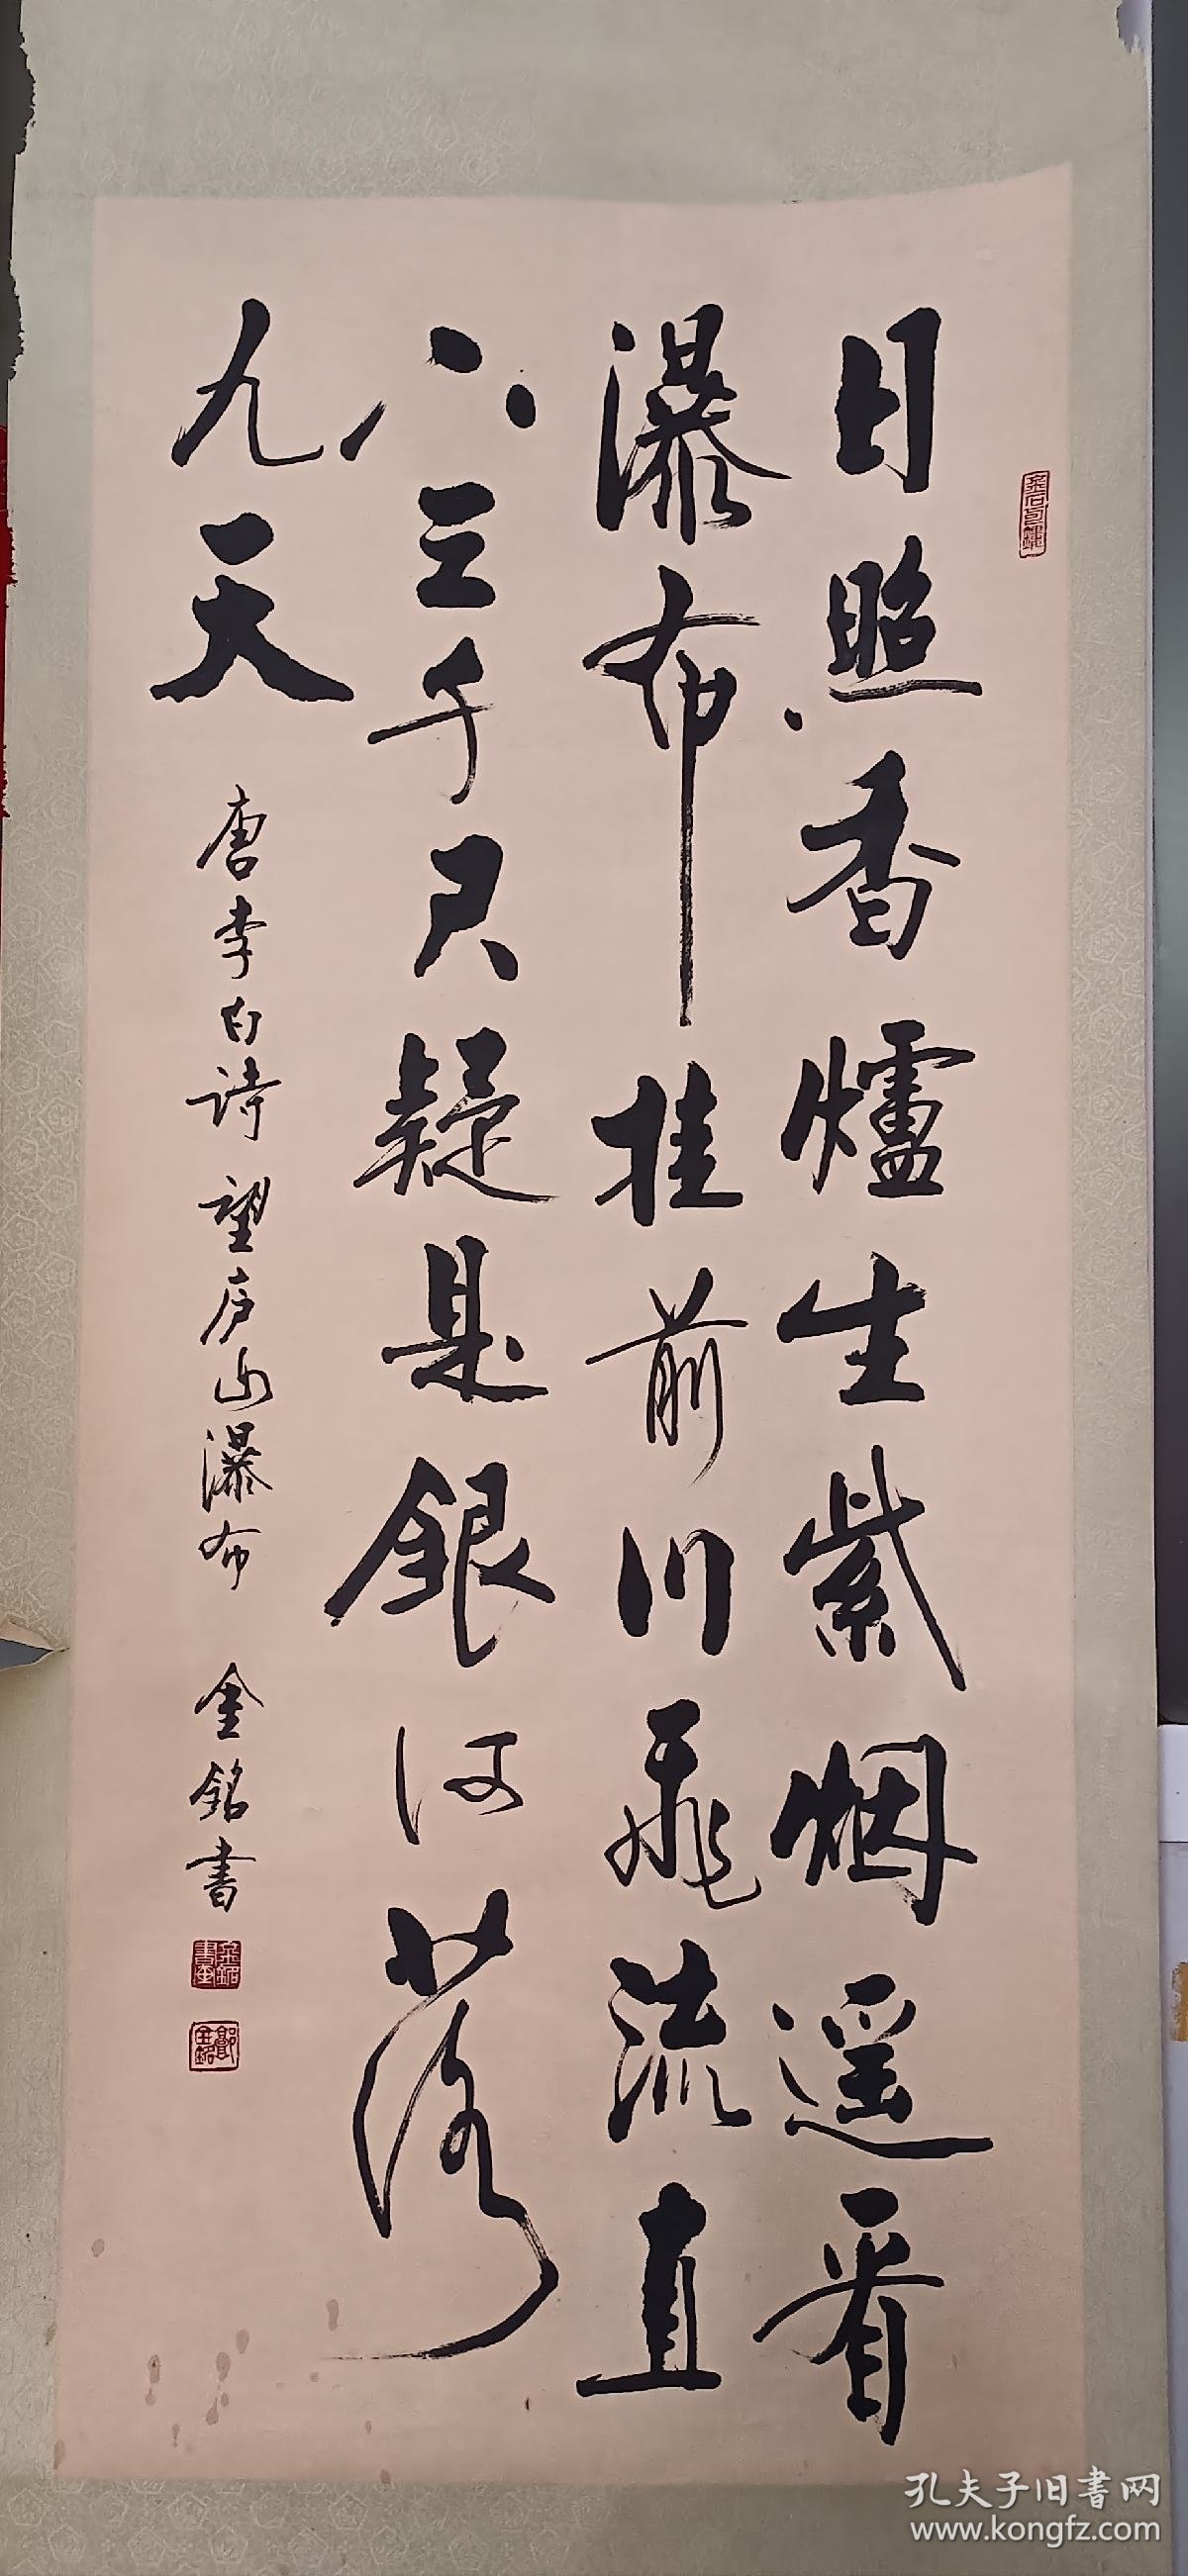 日照香爐生紫烟遥看
瀑布挂前川飛流直
下三千尺疑是銀河落
九天
唐李白詩望庐山瀑布 金銘書
孔夫子旧書网
www.kongfz.com